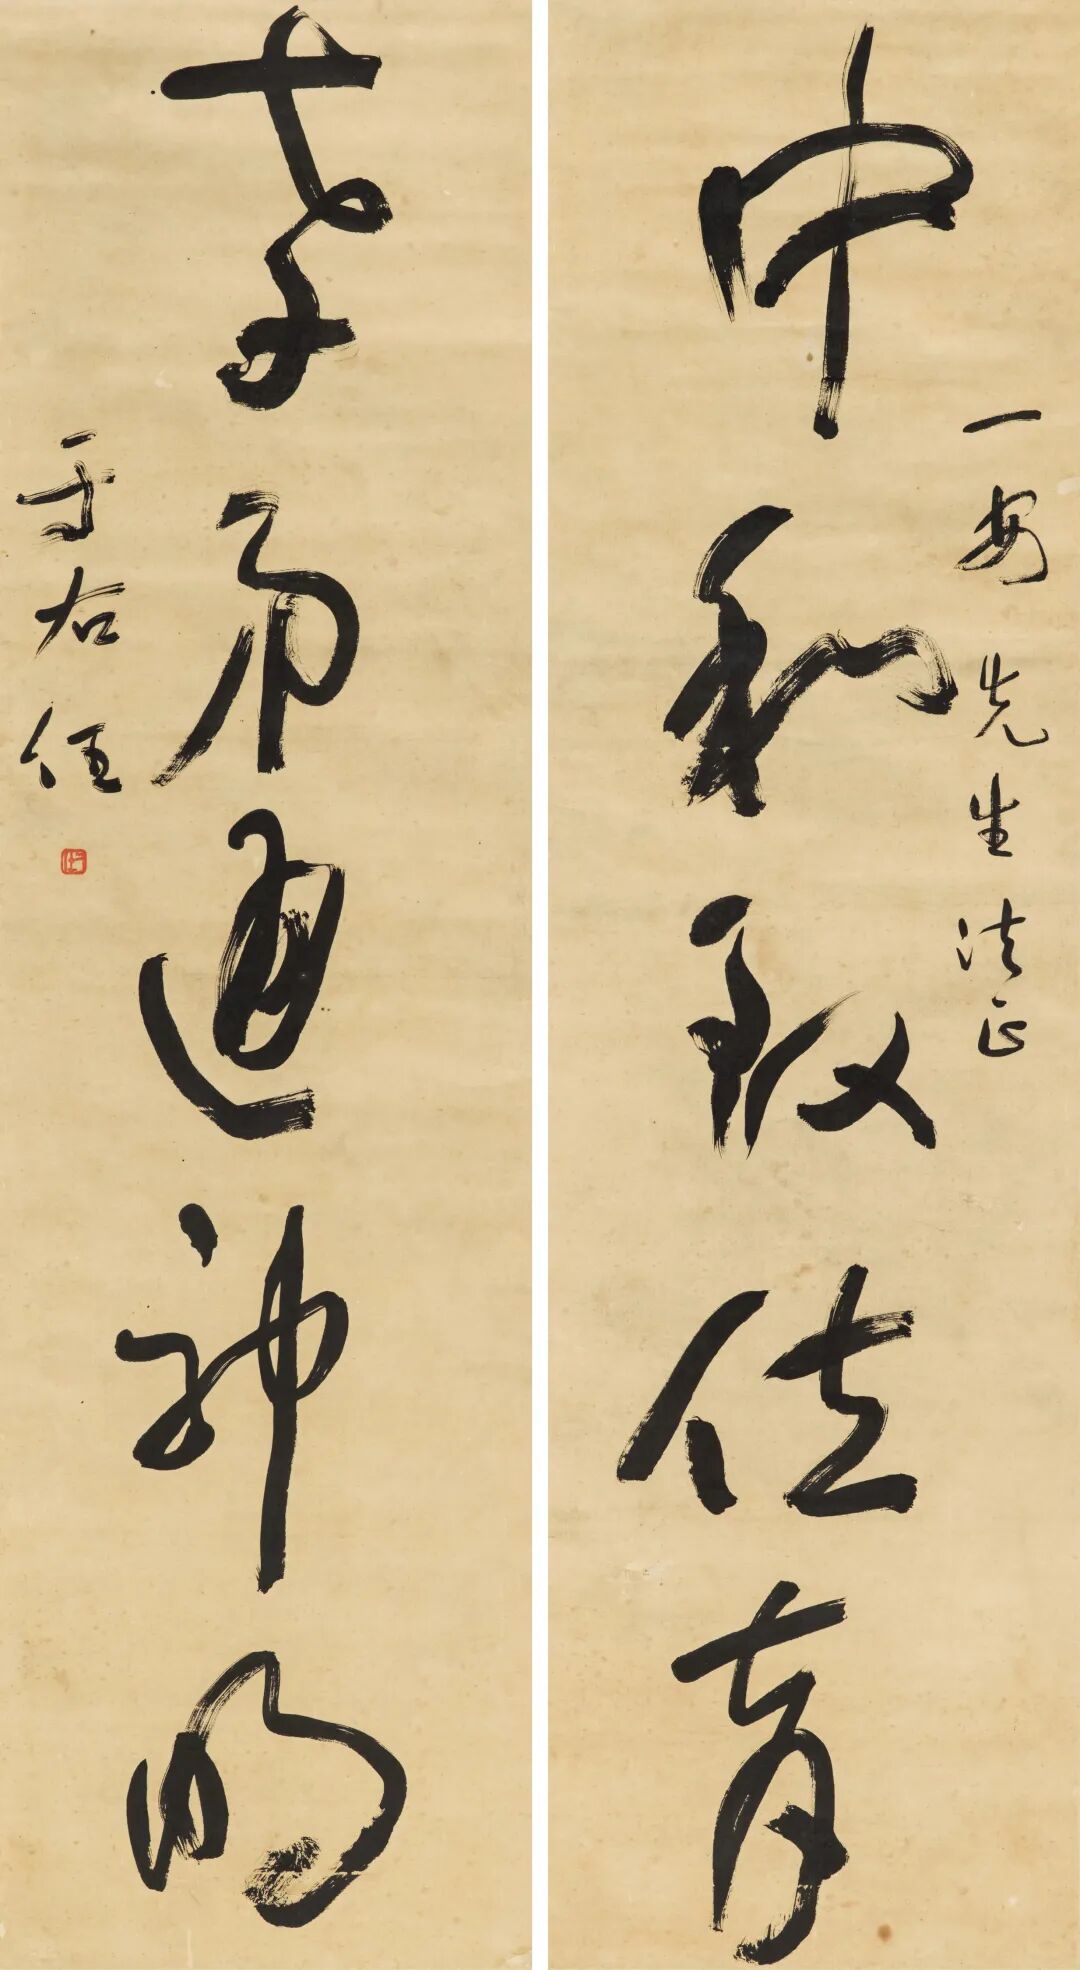 一安先生法正
中和致位育
孝弟通神明
于右任